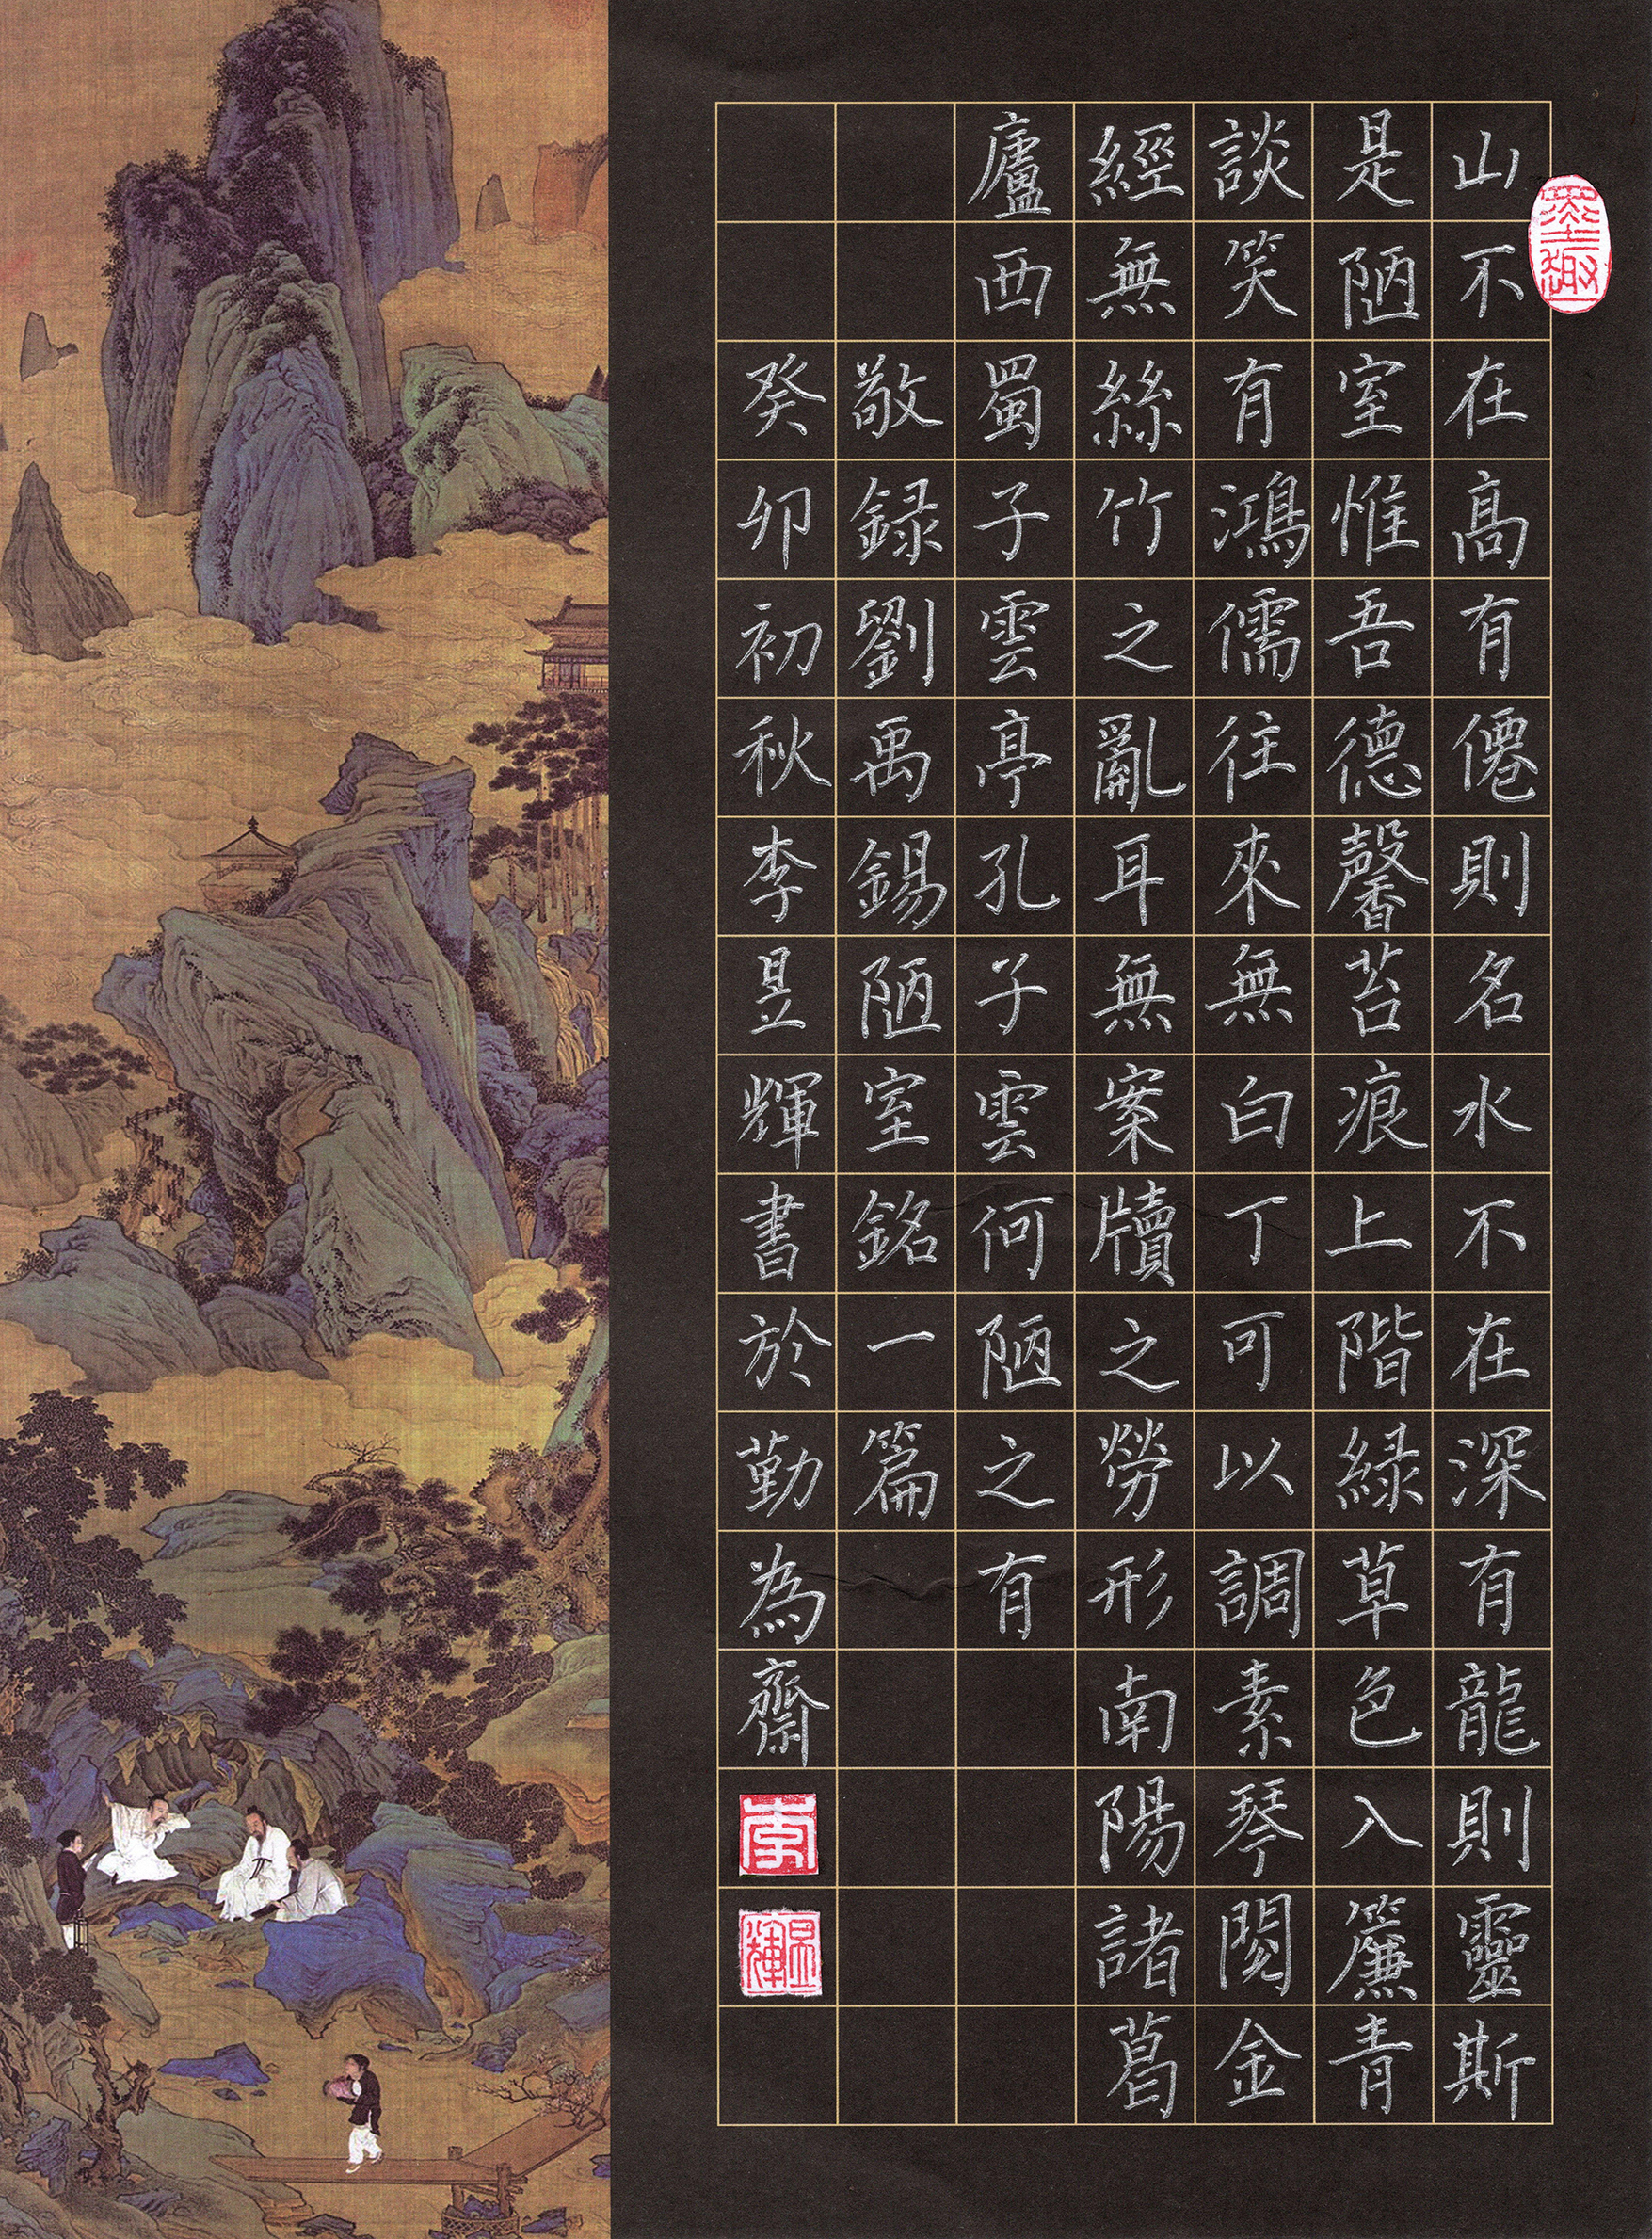 山不在高有僊則名水不在深有龍則靈斯
是陋室惟吾德馨苔痕上階緑草色入簾青
談笑有鴻儒往來無白丁可以調素琴閱金
經無絲竹之亂耳無案牘之勞形南陽諸葛
廬西蜀子雲亭孔子雲何陋之有
敬録劉禹錫陋室銘一篇
癸卯初秋李昱輝書於勤為齋
墨趣
李
昱輝